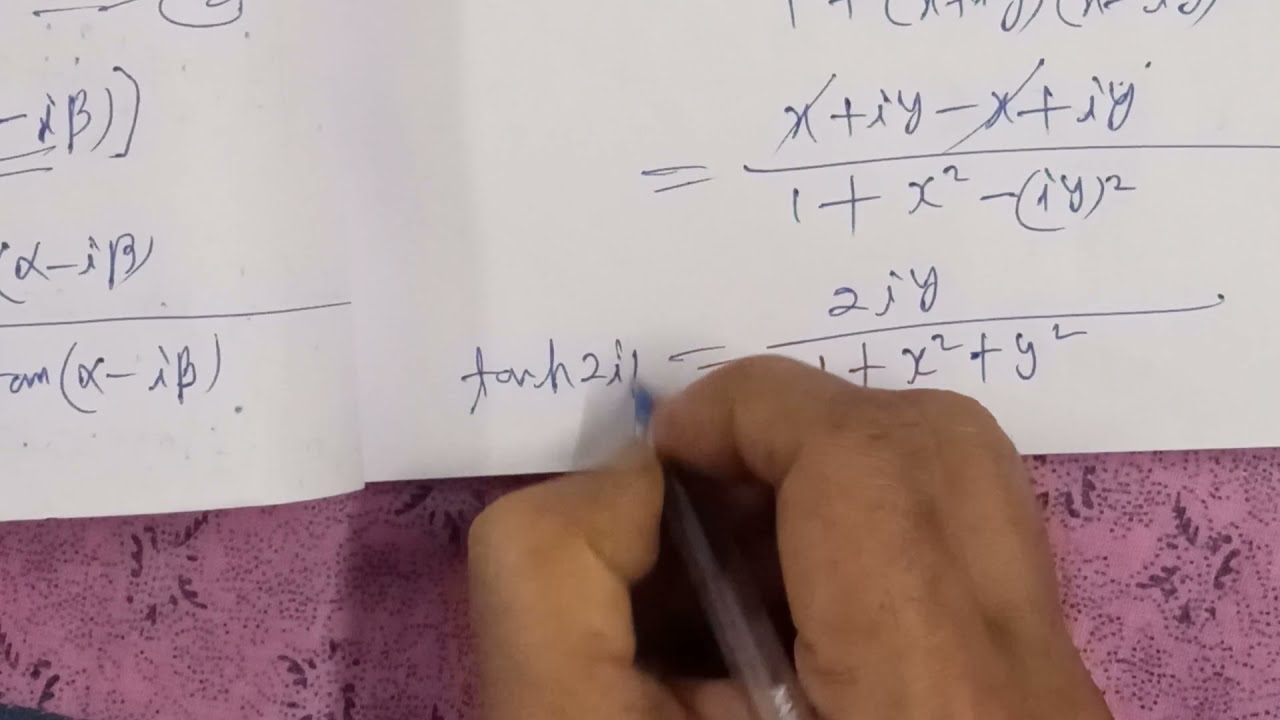 -iβ)]
(α-iβ)
tan(α-iβ)
1+(x+iy)(x-iy)
= x+iy-x+iy
1+x²-(iy)²
2iy
tanh2i = 1+x²+y²